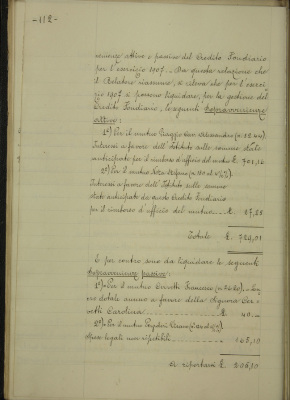 -112-
venienze attive e passive del Credito Fondiario
per l'esercizio 1907. - Da questa relazione che
il Relatore riassume, si rileva che per l'eserci-
zio 1907 si possono liquidare, per la gestione del
Credito Fondiario, le seguenti sopravvenienze
attive:
1°) Per il mutuo Piaggio Cav. Alessandro
Interessi a favore dell'Istituto sulle somme state
anticipate per il rimborso d'ufficio del mutuo £. 701,16
2°) Per il mutuo
Interessi a favore dell'Istituto sulle somme
state anticipate da questo Credito Fondiario
per il rimborso d'ufficio del mutuo £.
Totale £.
E per contro sono da liquidare le seguenti
sopravvenienze passive:
1°) - Per il mutuo Cerruti Francesco
totale annuo a favore della Signora
Carolina £. 40.-
2°) - Per il mutuo
spese legali non ripetibili 165,10
da riportarsi £. 206,10